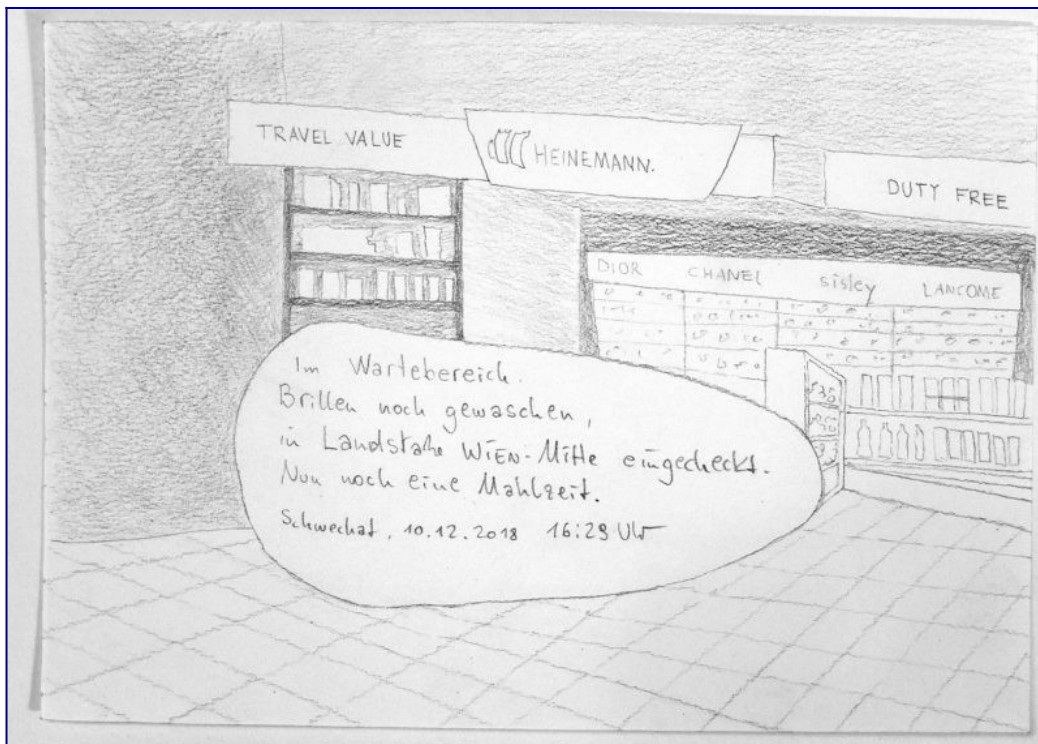 TRAVEL VALUE
HEINEMANN.
DUTY FREE
DIOR CHANEL sisley LANCOME
Im Wartebereich.
Brillen noch gewaschen,
in Landstraße WiEN-Mitte eingecheckt.
Nun noch eine Mahlzeit.
Schwechat, 10.12.2018 16:29 Uhr